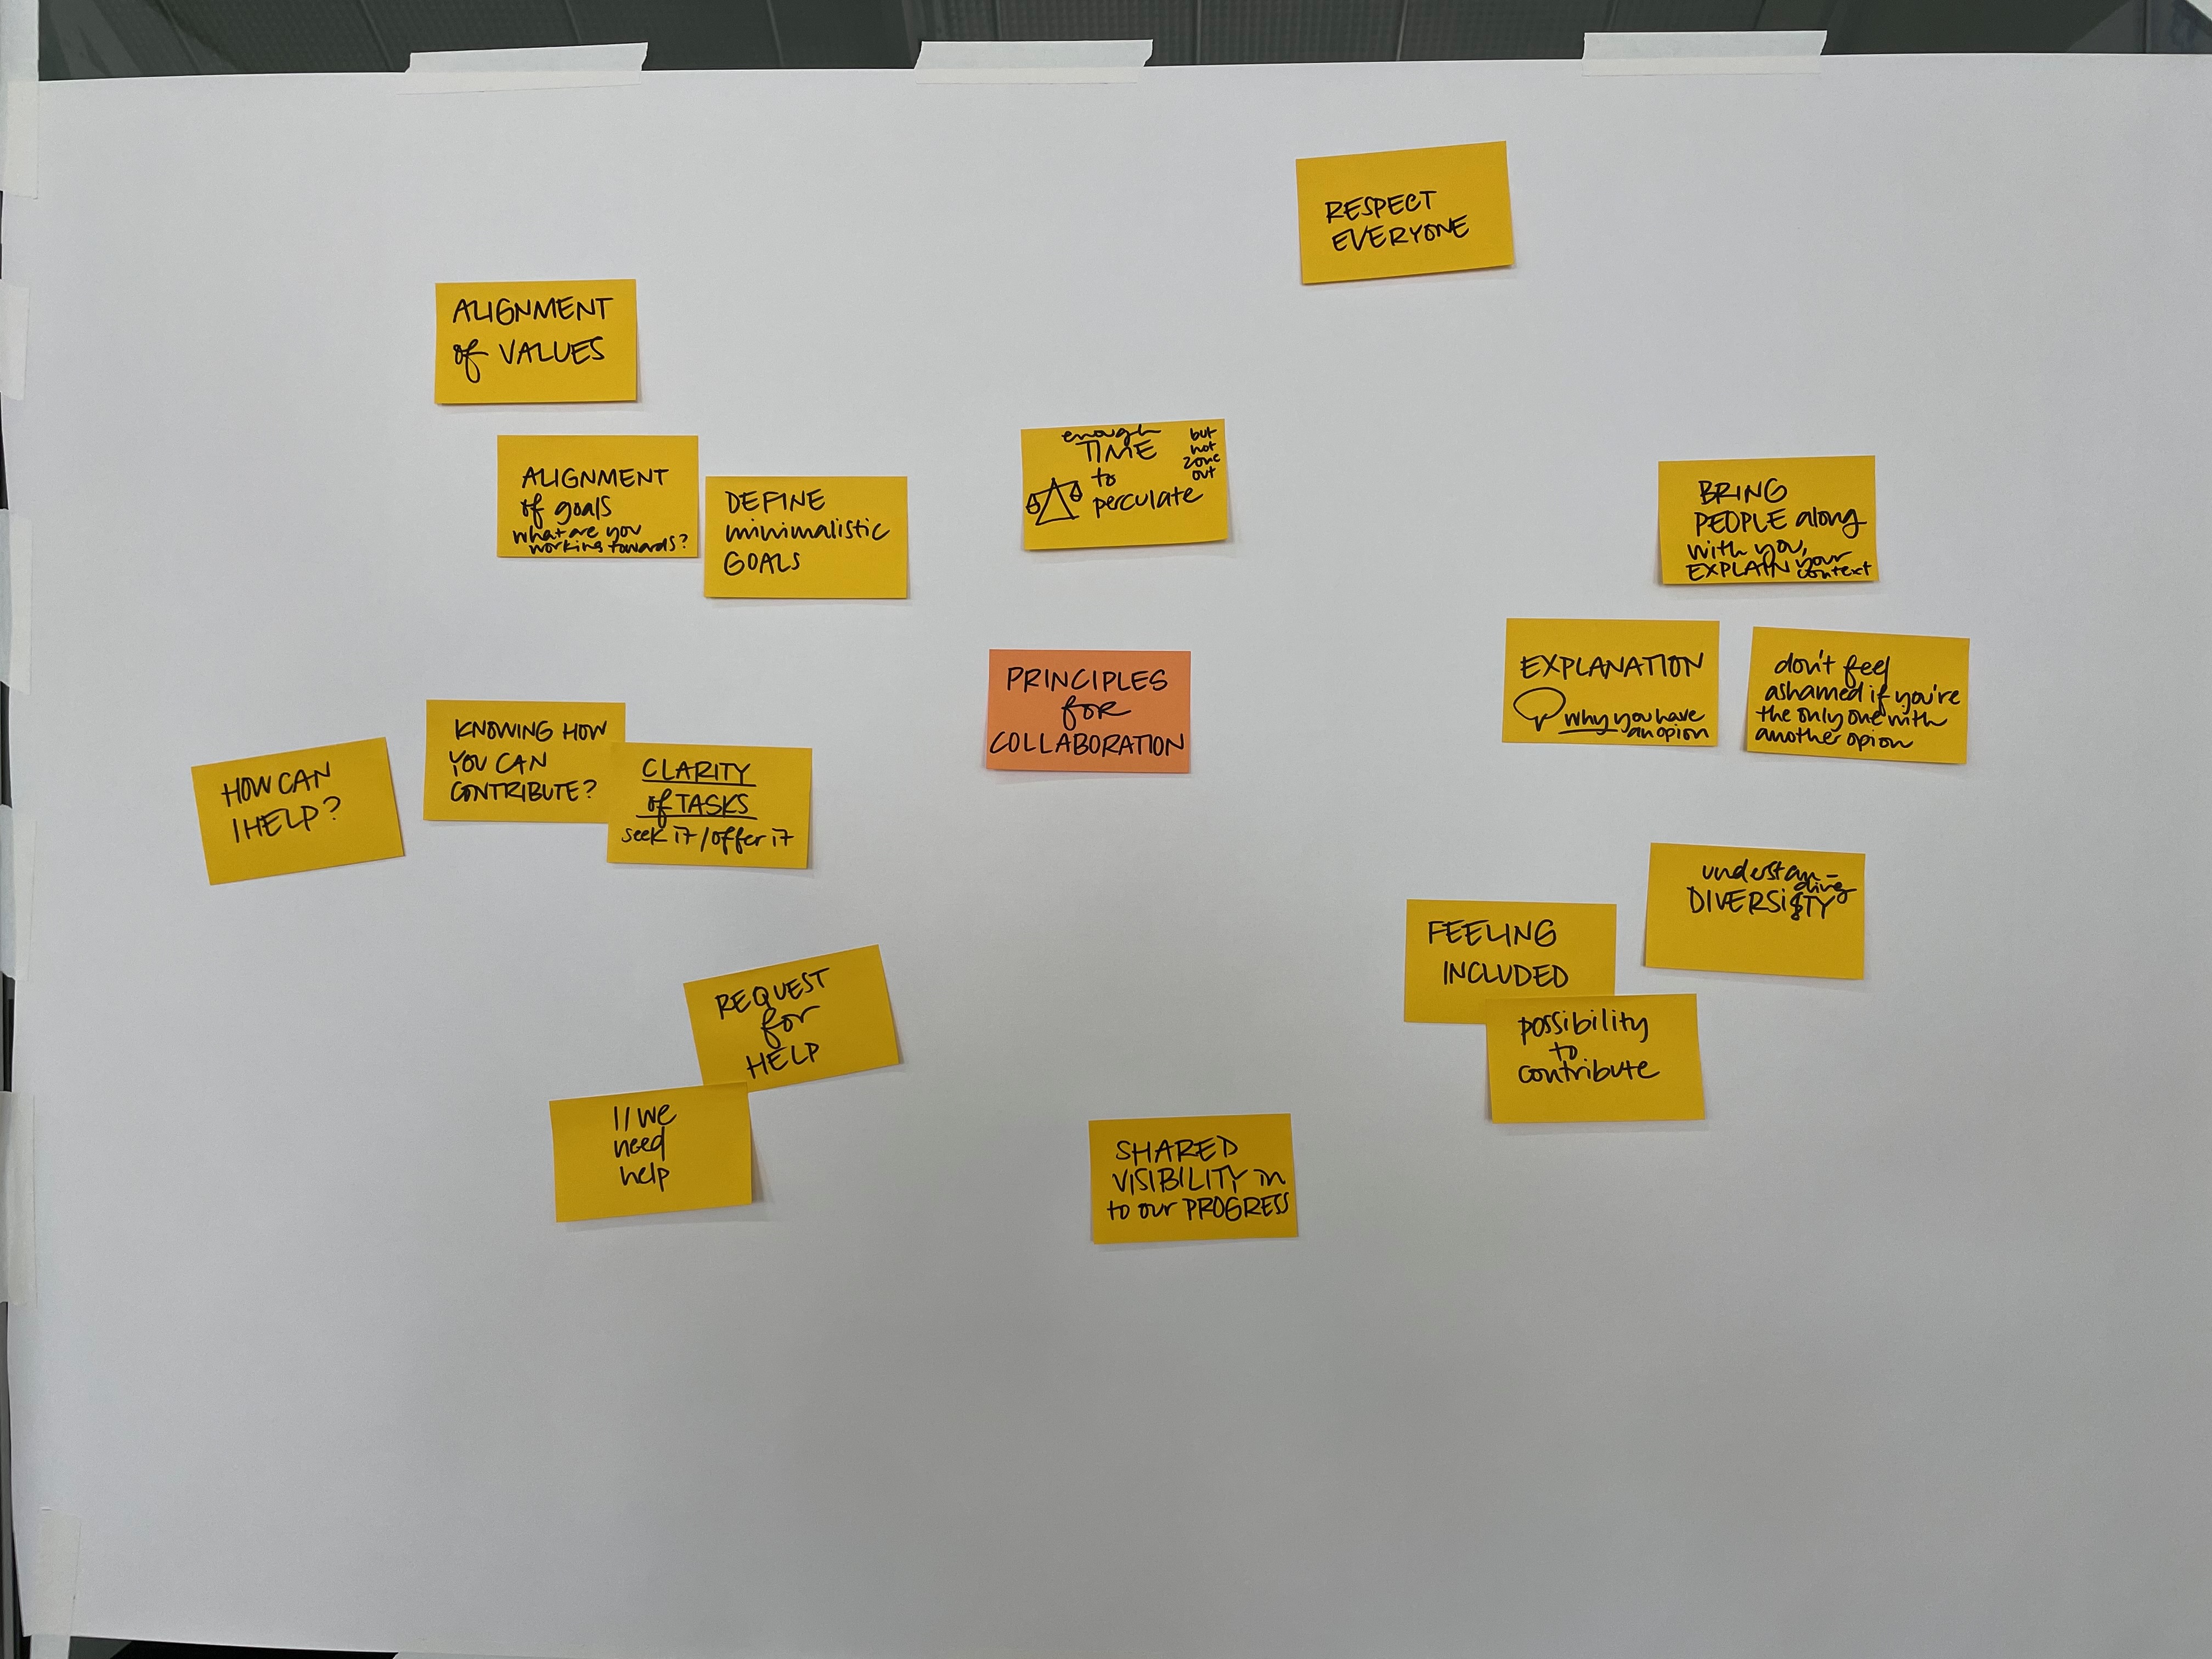 RESPECT
EVERYONE
ALIGNMENT
of VALUES
ALIGNMENT
of goals
what are you
working towards?
DEFINE
minimalistic
GOALS
enough
TIME
to
perculate
but
not
zone
out
BRING
PEOPLE along
with you,
EXPLAIN your
context
PRINCIPLES
for
COLLABORATION
EXPLANATION
why you have
an opion
don't feel
ashamed if you're
the only one with
another opion
HOW CAN
I HELP?
KNOWING HOW
YOU CAN
CONTRIBUTE?
CLARITY
of TASKS
seek it / offer it
understan-
ding
DIVERSITY
FEELING
INCLUDED
possibility
to
contribute
REQUEST
for
HELP
I / we
need
help
SHARED
VISIBILITY in
to our PROGRESS